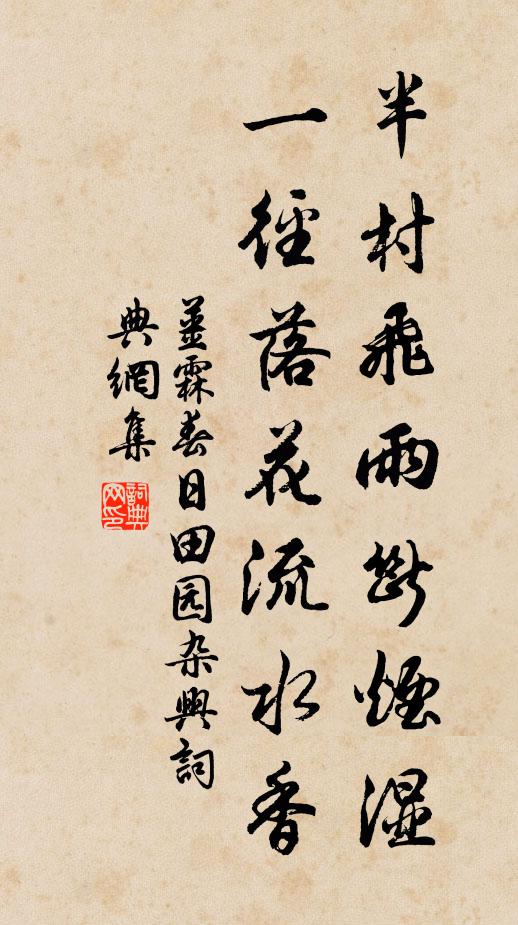 半村飛雨斷煙湿
一徑落花流水香
薑霖春日田园杂興詞
典網集
詞典
网印